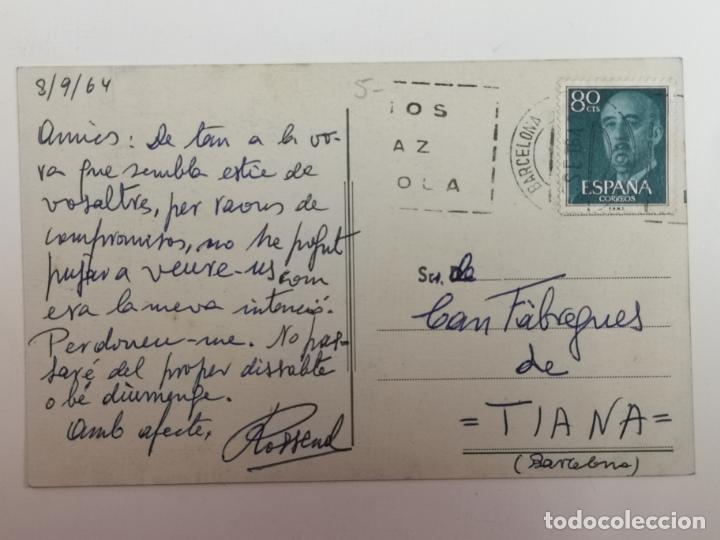 8/9/64
Amics: De tan a la vo-
ra que sembla estic de
vosaltres, per raons de
compromisos, no he pogut
pujar a veure-us com
era la meva intenció.
Perdoneu-me. No pas-
saré del proper dissabte
o bé diumenge.
Amb afecte,
Rossend
5-
IOS
AZ
OLA
BARCELONA
80
CTS
ESPAÑA
CORREOS
F.N.M.T.
Sr. de
Can Fàbregues
de
= TIANA =
(Barcelona)
todocoleccion.net